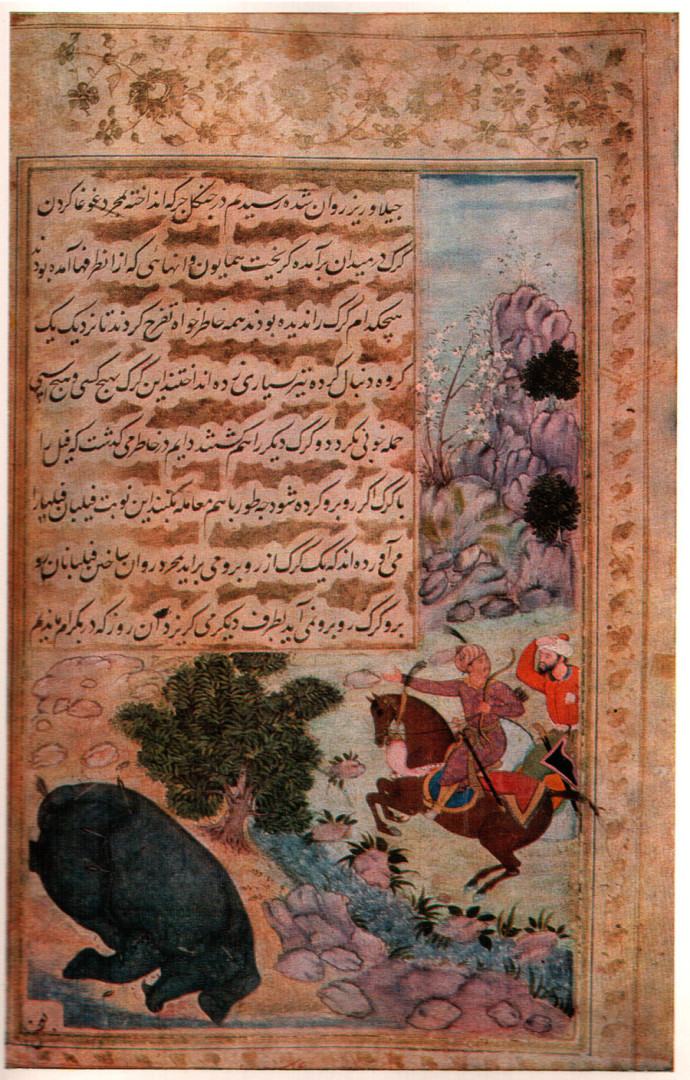 جیلاو ریز روان شده رسیدم در جنگل جرکه انداخته بمجرد غوغا کردن
کرک در میدان برآمده کریخت همایون و انهائی که از انطرفها آمده بودند
هیچکدام کرک را ندیده بودند همه خاطر خواه تفرج کردند تا نزدیک یک
کروه دنبال کرده تیر بسیاری زده انداختند این کرک بهیچ کسی و هیچ اسپی
حمله خوبی نکرد دو کرک دیکر را هم کشتند دایم در خاطر می کذشت که فیل را
با کرک اکر روبرو کرده شود چه طور باهم معامله بکنند این نوبت فیلبان فیلها را
می آورده اند که یک کرک از روبرو می براید بمجرد روان ساختن فیلبانان رو
برو کرک روبرو نمی آید بطرف دیکر می کریزد آن روز که در بکرام ماندیم